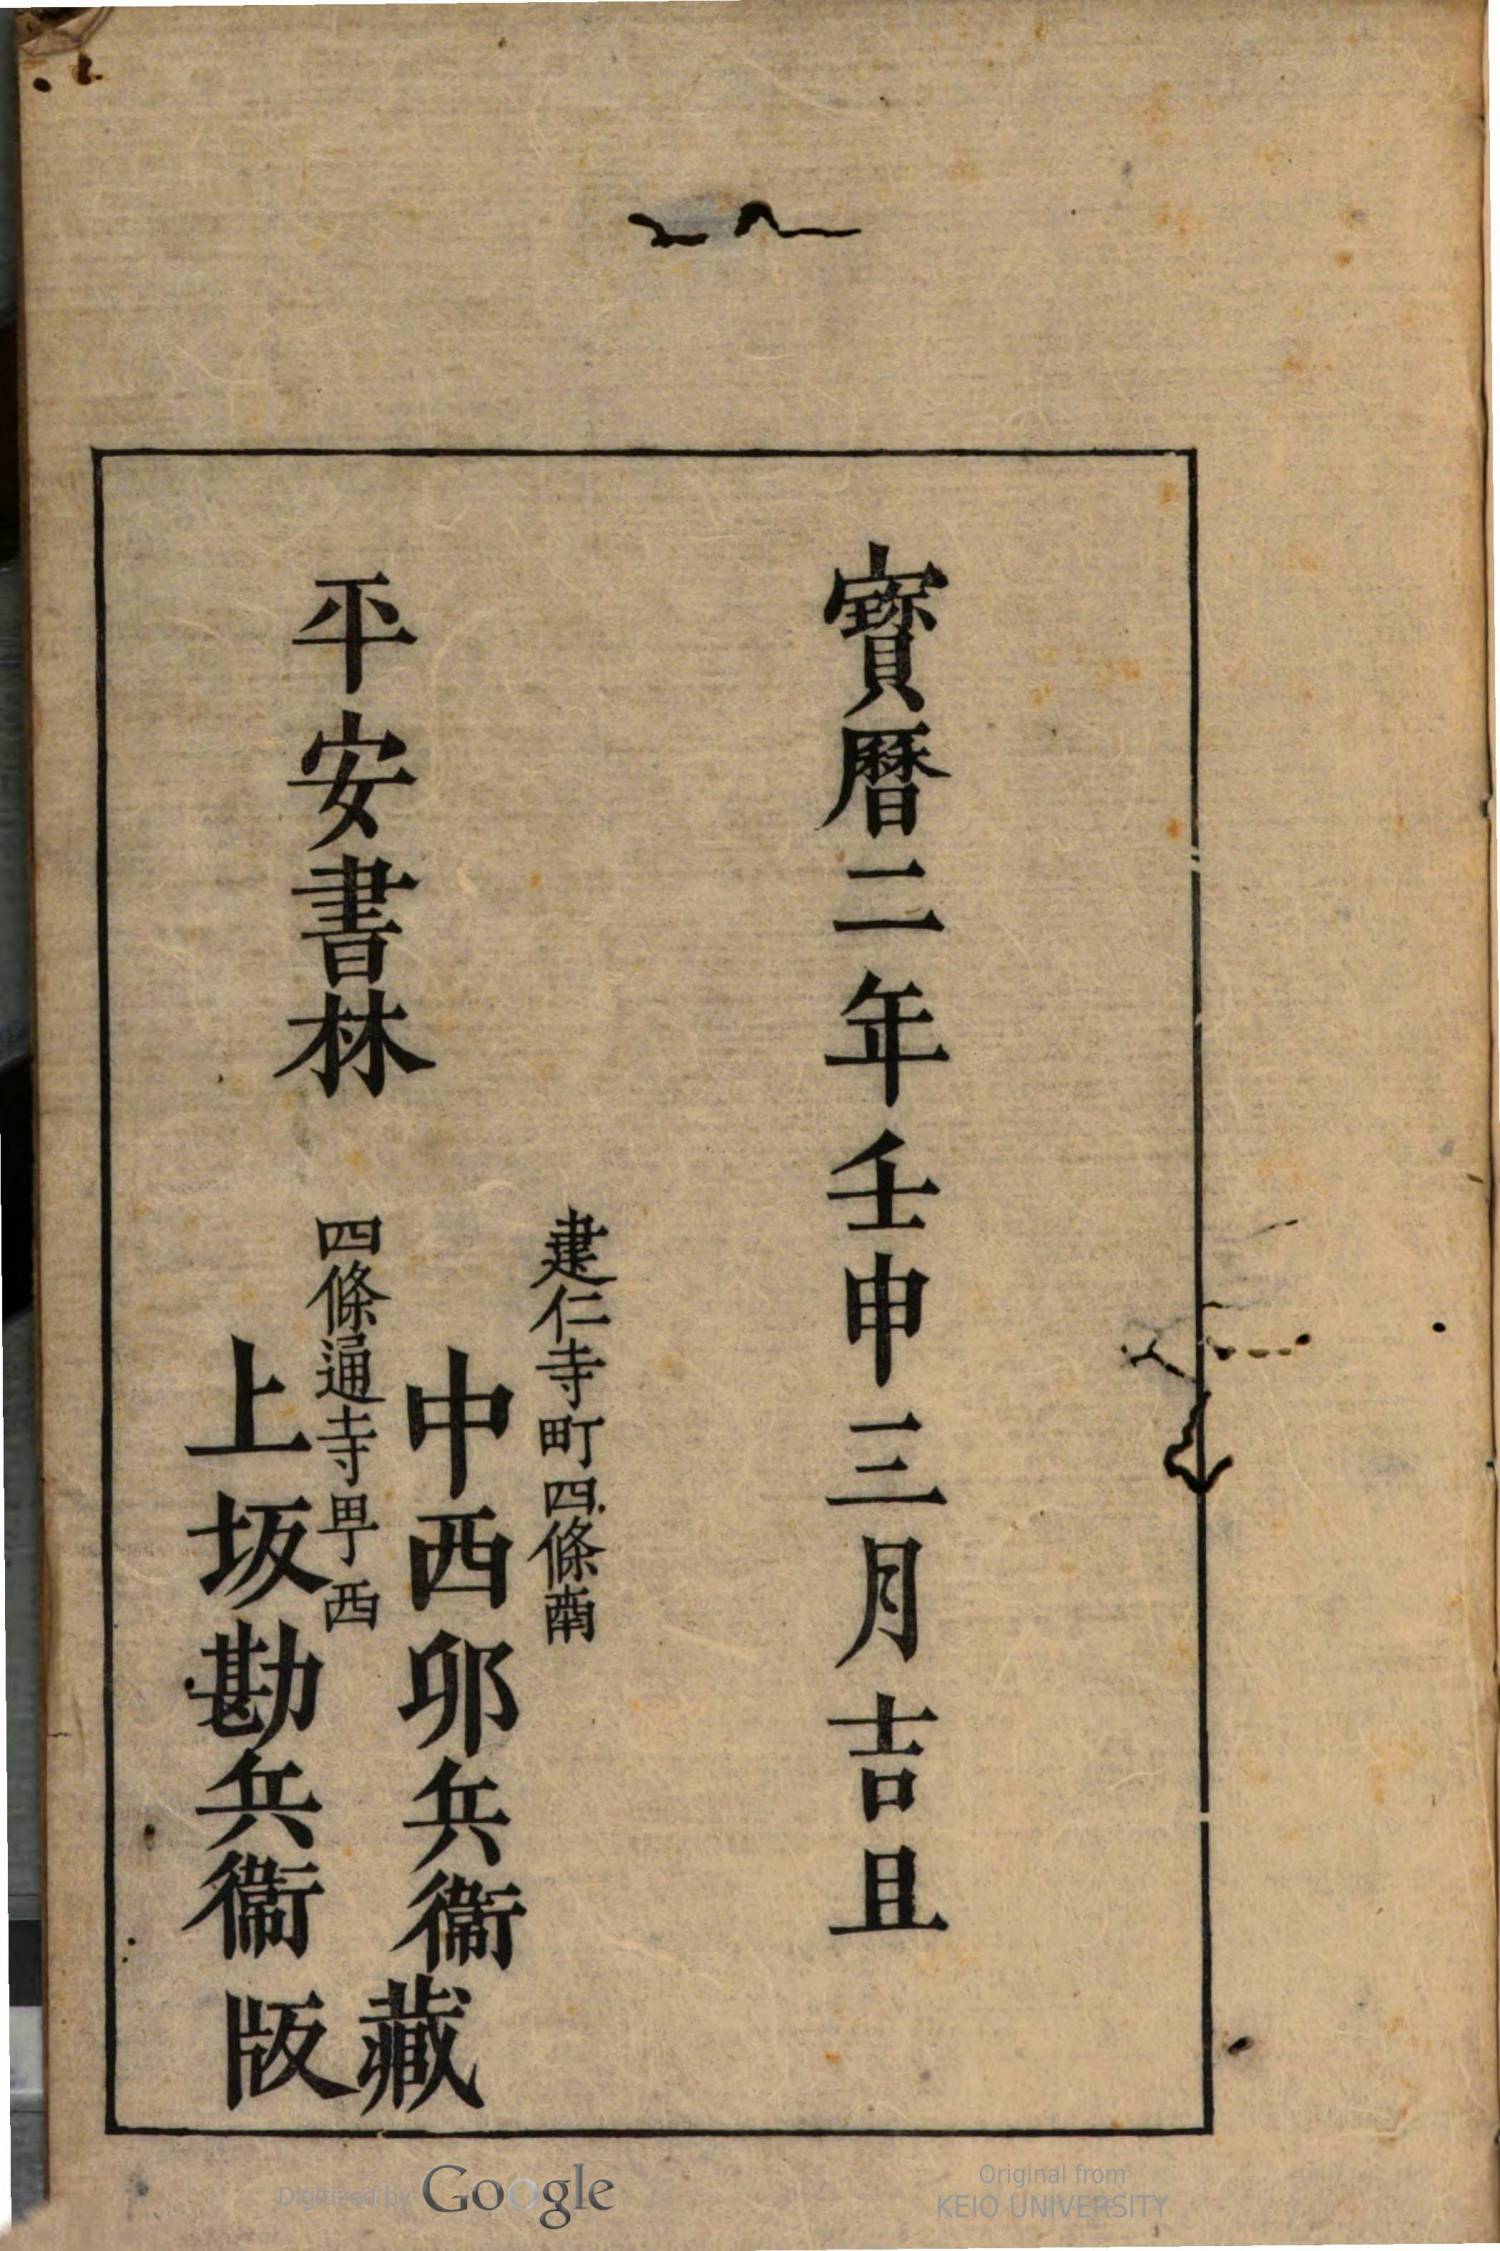 寶曆二年壬申三月吉旦
建仁寺町四條南
中西卯兵衞
平安書林
四條通寺町西
上坂勘兵衞
藏版
Digitized by Google
Original from
KEIO UNIVERSITY